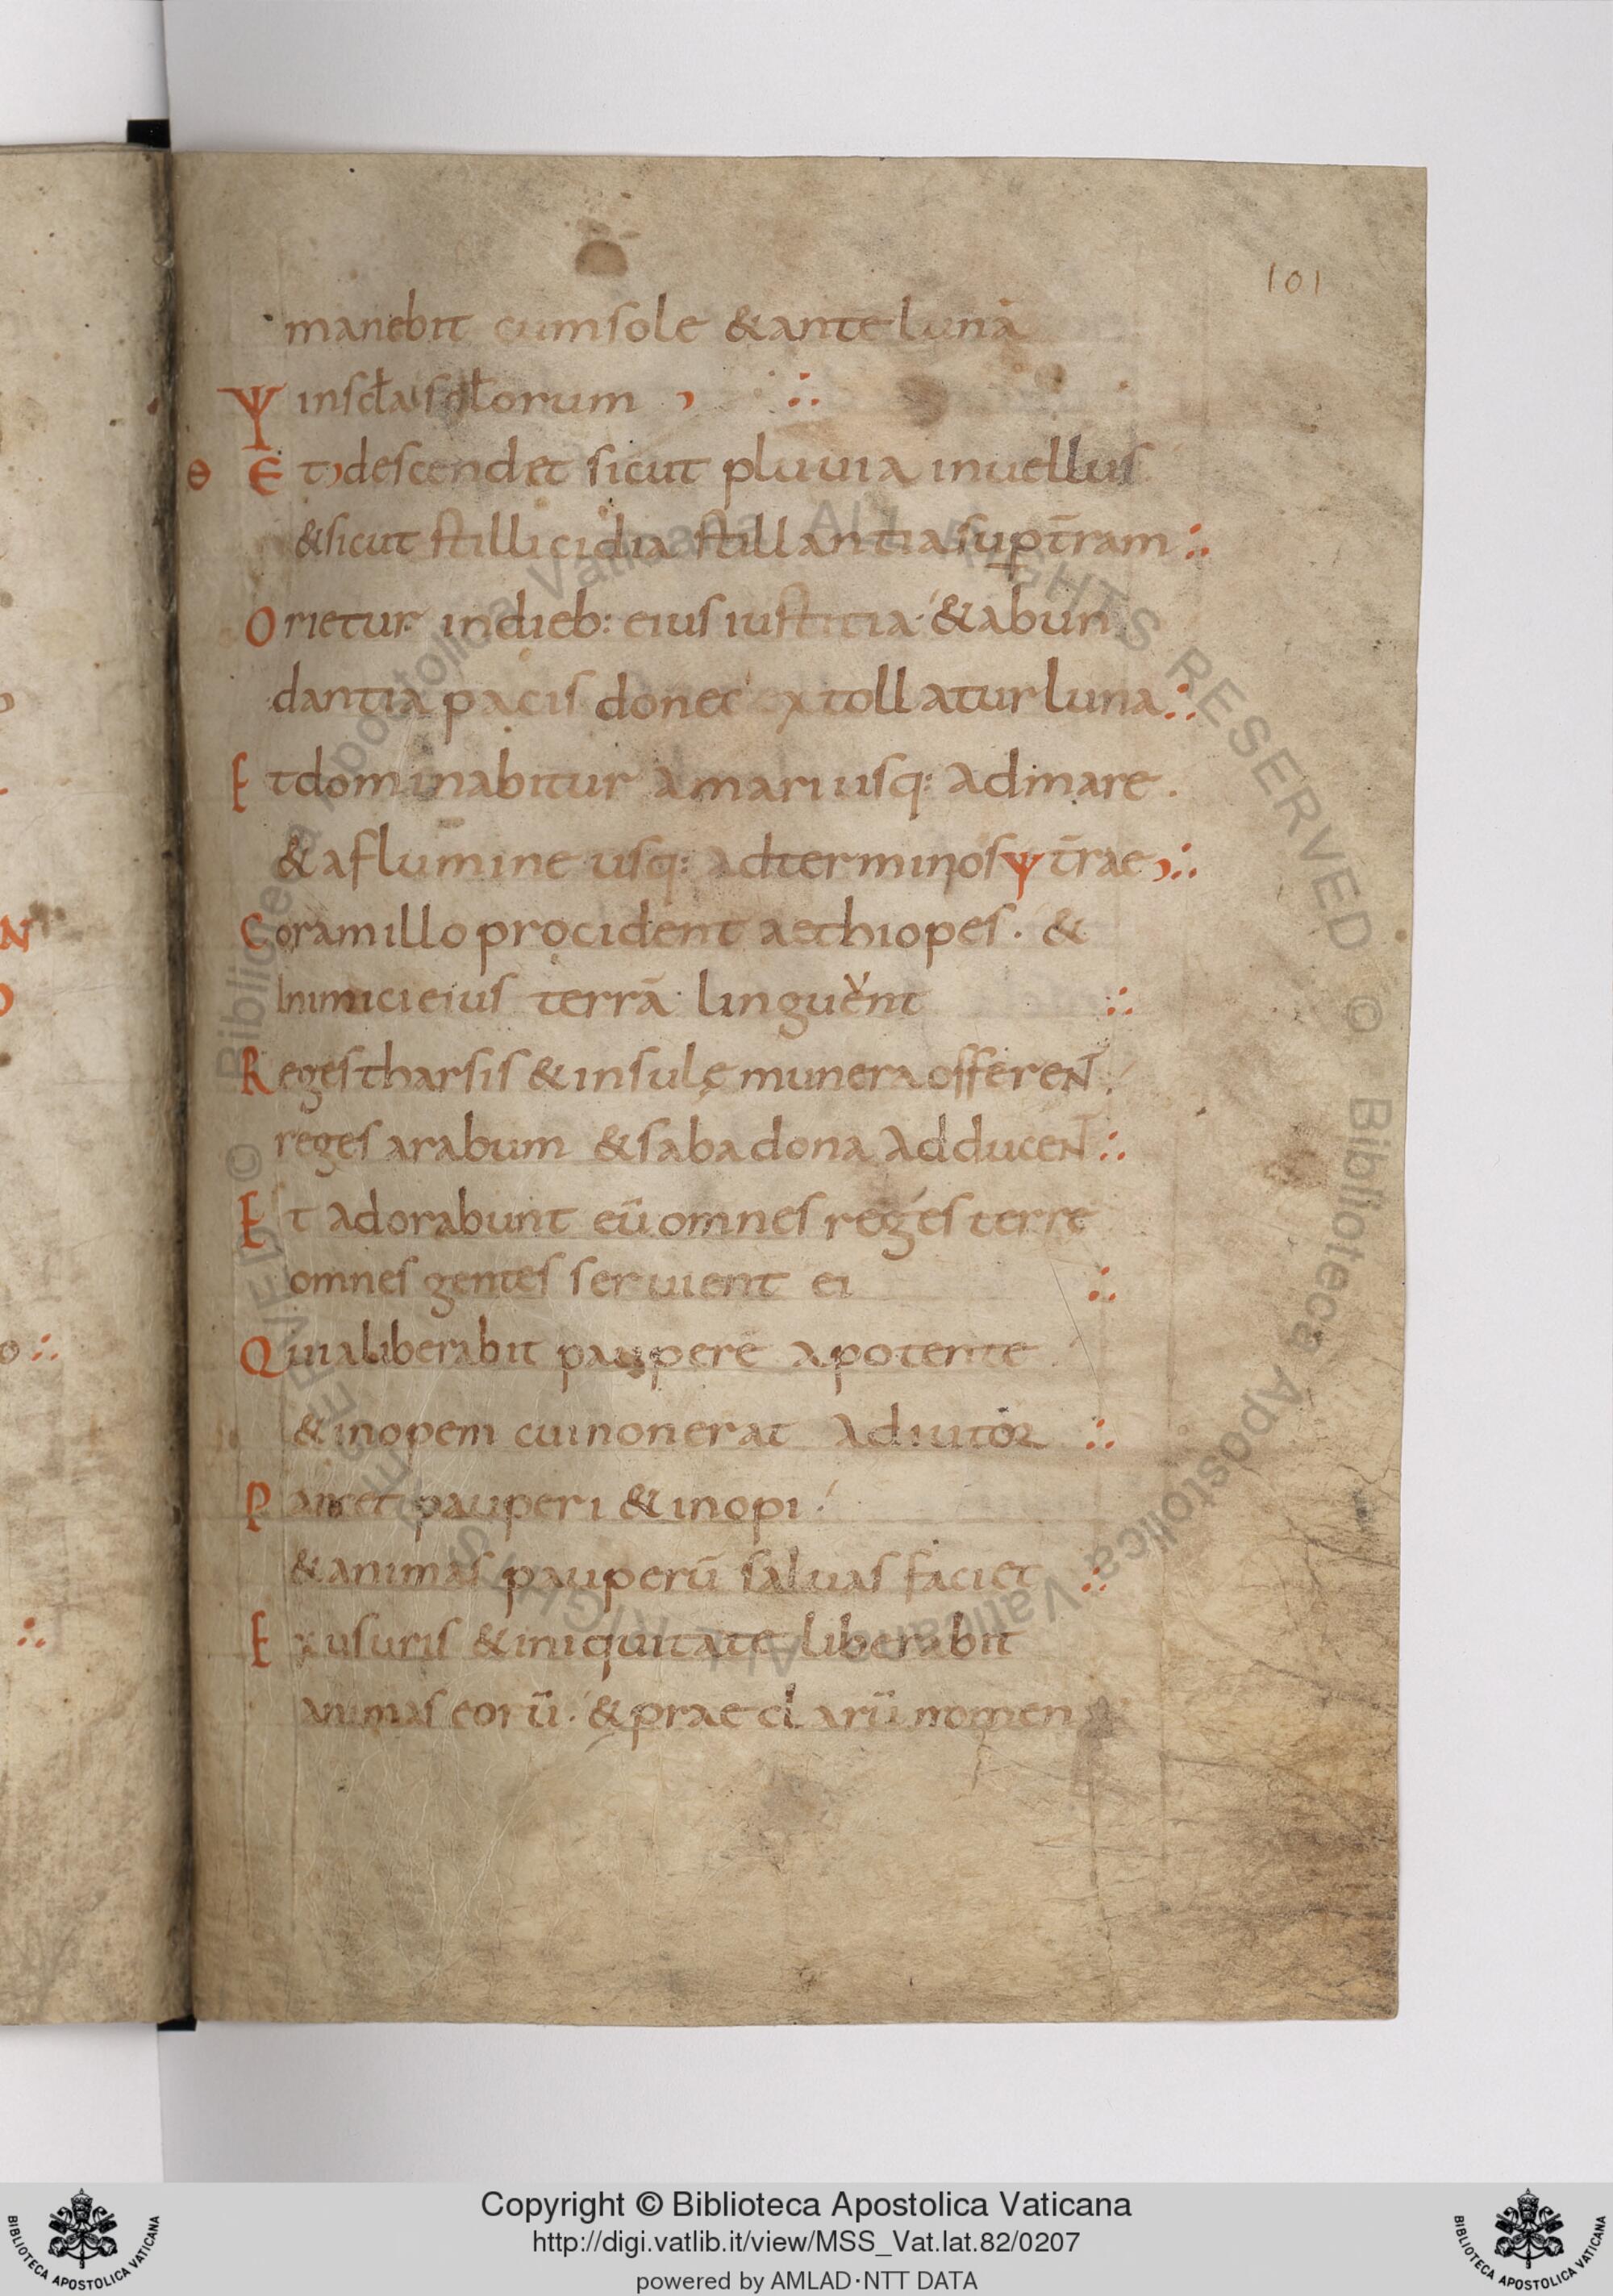 101
manebit cumsole &anteluná
Ψ insc̄la sc̄lorum , ∴
Θ Et, descendet sicut pluuia inuellus
&sicut stillicidia stillantiasup t̄ram ∴
Orietur indieb: eius iustitia &abun
dantia pacis donec extollaturluna ∴
Etdominabitur amariusq: admare .
& aflumine usq: adterminos Ψ t̄rae, ∴
Coramillo procident aethiopes . &
Inimicieius terrā linguent ∴
Reges tharsis &insulę munera offereN̄
reges arabum &saba dona adduceN̄ ∴
Et adorabunt eū omnes reges terre
omnes gentes seruient ei ∴
Quialiberabit pauperē apotente
&inopem cuinonerat adiutor ∴
Parcet pauperi &inopi
&animas pauperū saluas faciet ∴
Exusuris &iniquitate liberabit
animas eorū . & praeclarū nomen
Copyright © Biblioteca Apostolica Vaticana
http://digi.vatlib.it/view/MSS_Vat.lat.82/0207
powered by AMLAD·NTT DATA
BIBLIOTECA APOSTOLICA VATICANA
BIBLIOTECA APOSTOLICA VATICANA
© Biblioteca Apostolica Vaticana ALL RIGHTS RESERVED
© Biblioteca Apostolica Vaticana ALL RIGHTS RESERVED